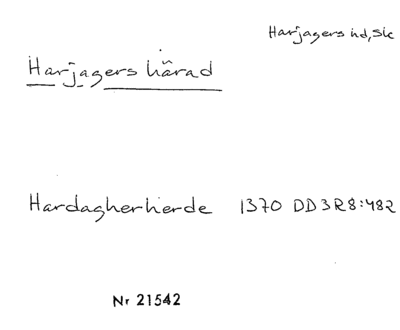 Harjagers hd, Sk
Harjagers härad
Hardagherherde 1370 DD3R8:482
Nr 21542